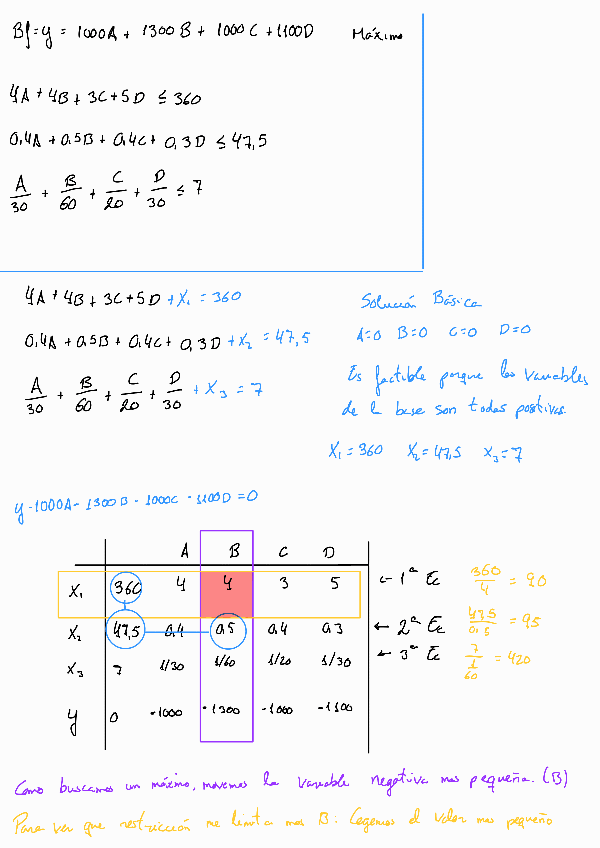 Bf=y = 1000A + 1300B + 1000C + 1100D Máximo
4A + 4B + 3C + 5D ≤ 360
0,4A + 0.5B + 0,4C + 0,3D ≤ 47,5
A/30 + B/60 + C/20 + D/30 ≤ 7
4A + 4B + 3C + 5D + X₁ = 360
0,4A + 0.5B + 0,4C + 0,3D + X₂ = 47,5
A/30 + B/60 + C/20 + D/30 + X₃ = 7
Solución Básica
A=0 B=0 C=0 D=0
Es factible porque las variables
de la base son todas positivas.
X₁=360 X₂=47,5 X₃=7
y -1000A - 1300B - 1000C - 1100D = 0
A B C D
X₁ 360 4 4 3 5 ← 1ª Ec 360/4 = 90
X₂ 47,5 0,4 0,5 0,4 0,3 ← 2ª Ec 47,5/0,5 = 95
X₃ 7 1/30 1/60 1/20 1/30 ← 3ª Ec 7/(1/60) = 420
y 0 -1000 -1300 -1000 -1100
Como buscamos un máximo, movemos la variable negativa mas pequeña. (B)
Para ver que restricción me limita mas B: Cogemos el valor mas pequeño